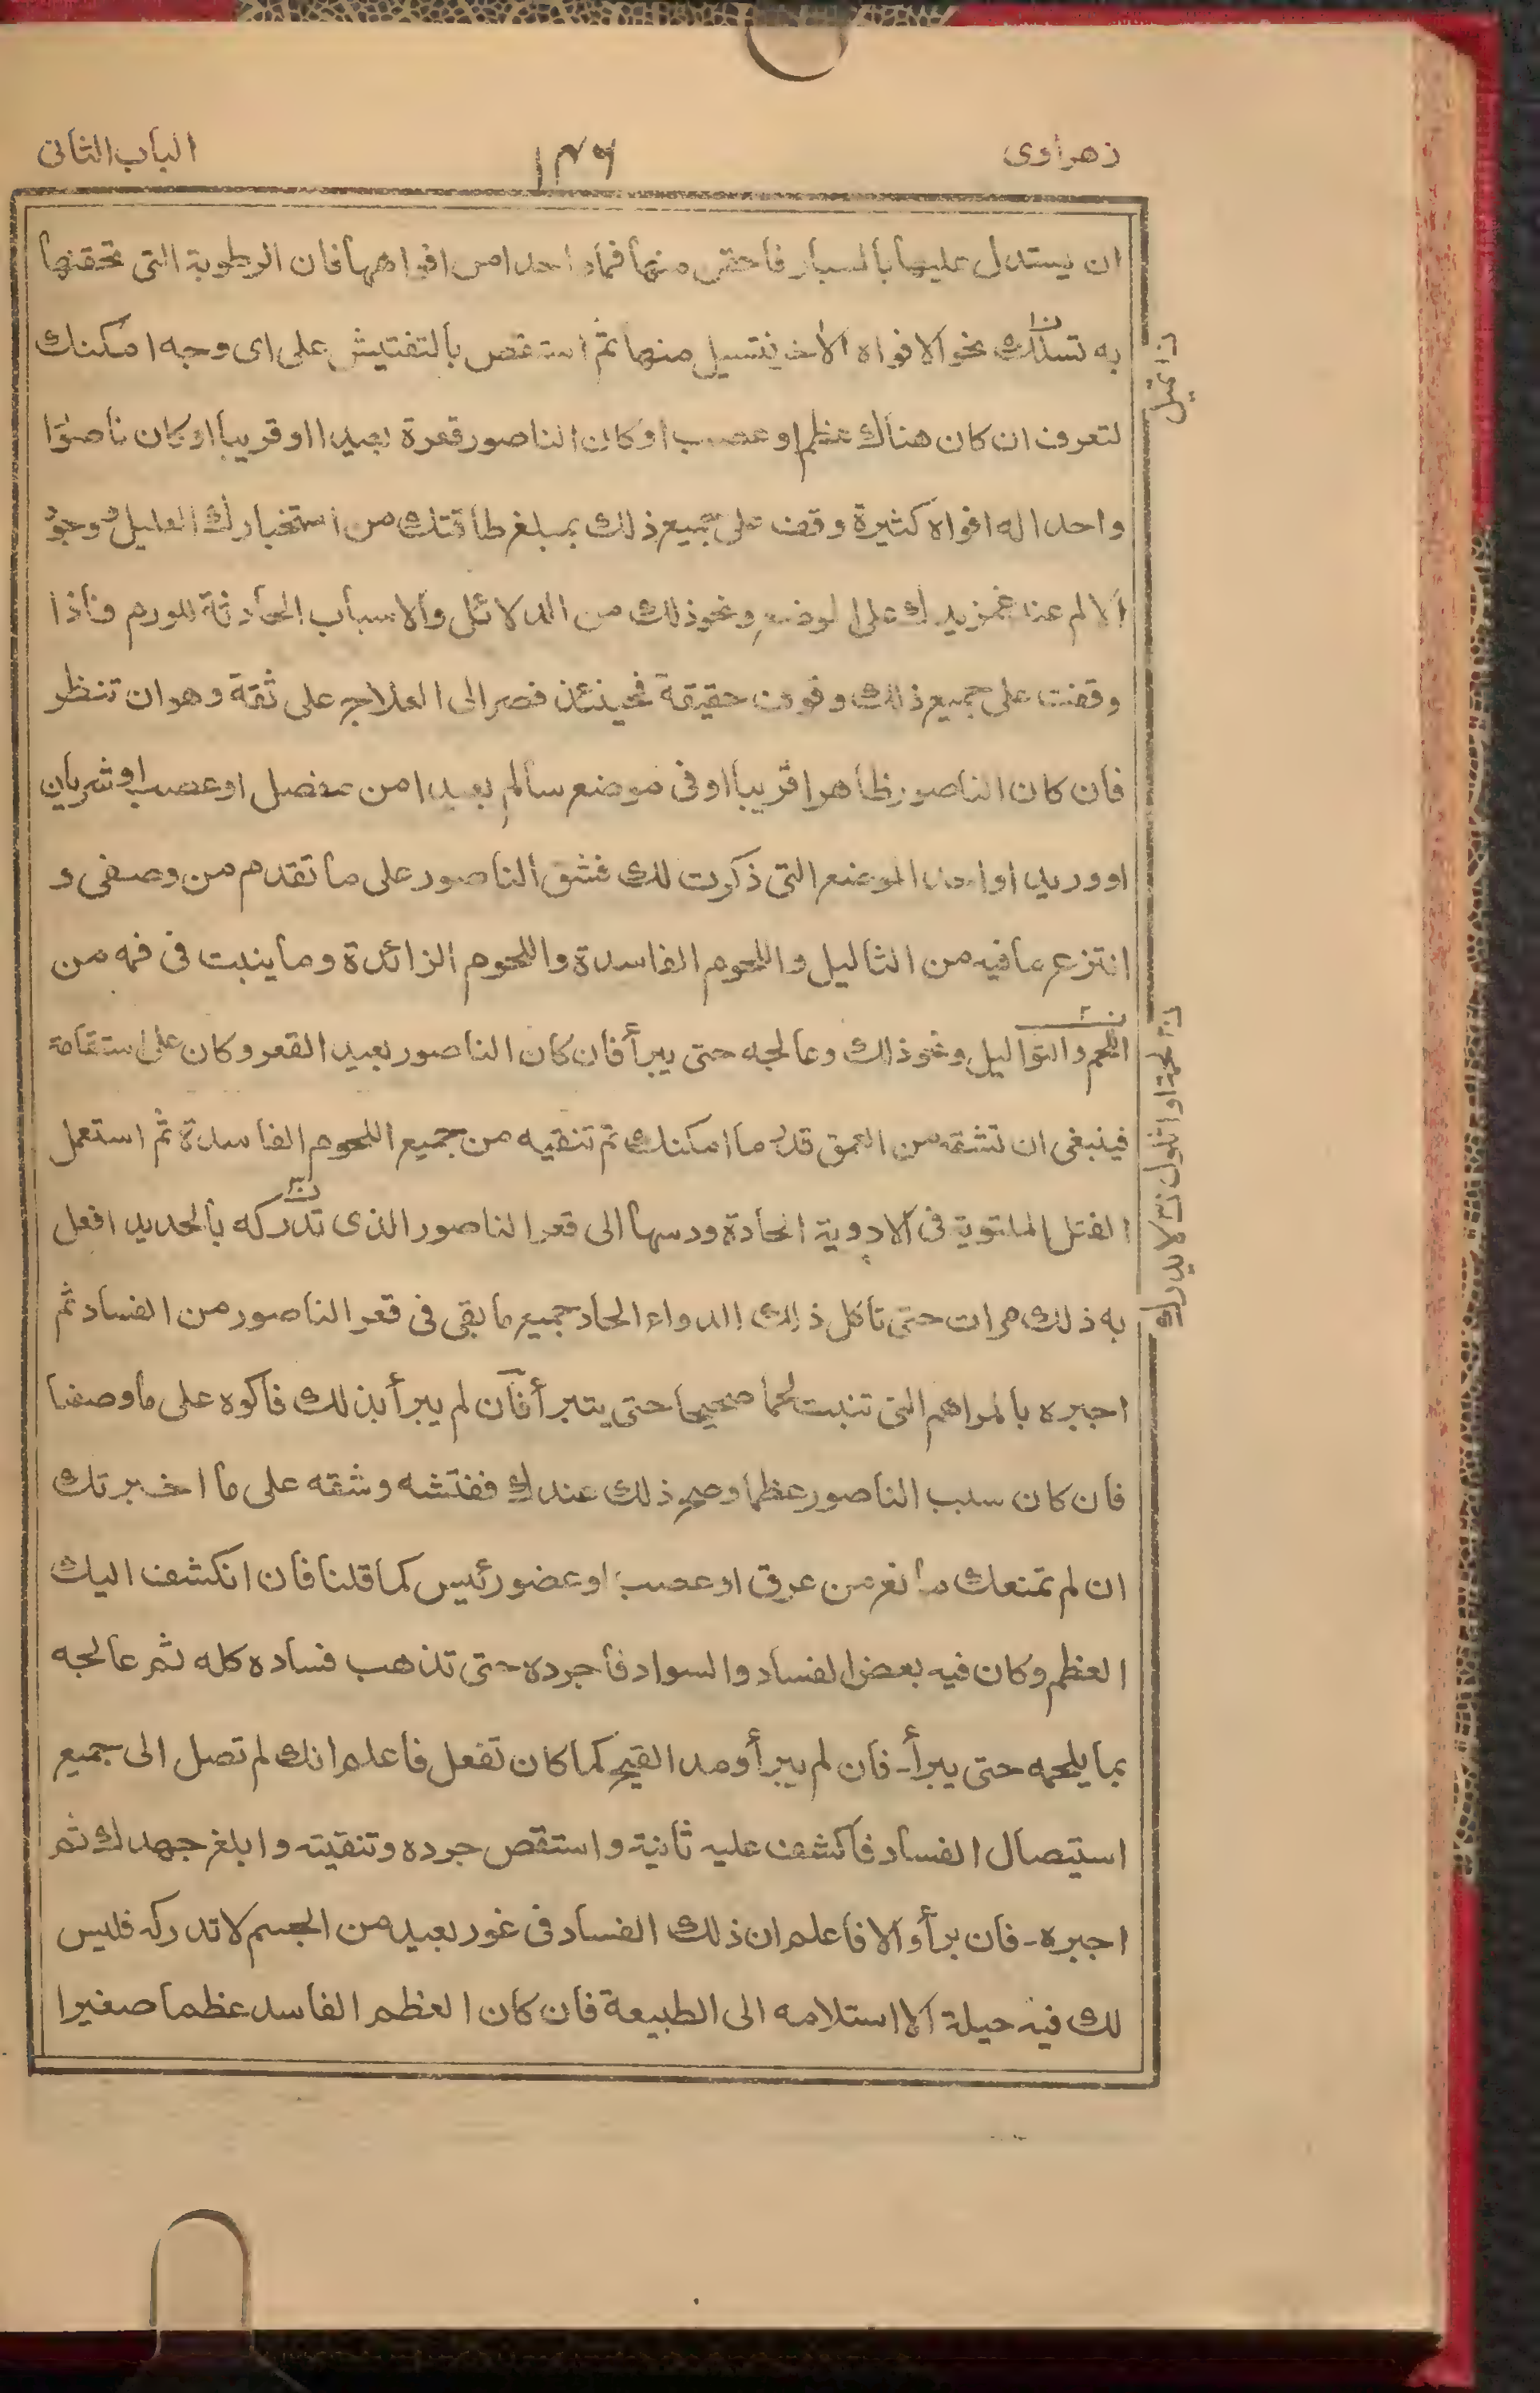 زهراوى
١٤٦
الباب الثانى
ان يستدل عليها بالمسبار فاحقن منها فما واحدا من افواهها فان الرطوبة التى تحقنها
به تسلك نحو الافواه الاخر فتسيل منها ثم استقص بالتفتيش على اى وجه امكنك
لتعرف ان كان هناك عظم او عصب او كان الناصور قعرة بعيدا او قريبا او كان ناصورا
واحدا له افواه كثيرة وقف على جميع ذلك بمبلغ طاقتك من استخبارك العليل ووجود
الالم عند غمز يدك على الموضع ونحو ذلك من الدلائل والاسباب الحادثة للورم فاذا
وقفت على جميع ذلك وقوف حقيقة فحينئذ فصر الى العلاج على ثقة وهو ان تنظر
فان كان الناصور ظاهرا قريبا او فى موضع سالم بعيدا من مفصل او عصب او شريان
او وريد او احد الموضع التى ذكرت لك فشق الناصور على ما تقدم من وصفى و
انتزع ما فيه من الثاليل واللحوم الفاسدة واللحوم الزائدة وما ينبت فى فمه من
اللحم والتواليل ونحو ذلك وعالجه حتى يبرأ فان كان الناصور بعيد القعر وكان على استقامة
فينبغى ان تشقه من العمق قدر ما امكنك ثم تنقيه من جميع اللحوم الفاسدة ثم استعمل
الفتل الملتوية فى الادوية الحادة ودسها الى قعر الناصور الذى تدركه بالحديد افعل
به ذلك مرات حتى تأكل ذلك الدواء الحاد جميع ما بقى فى قعر الناصور من الفساد ثم
اجبره بالمراهم التى تنبت لحما صحيحا حتى يتبرأ فان لم يبرأ بذلك فاكوه على ما وصفنا
فان كان سبب الناصور عظما وصح ذلك عندك ففتشه وشقه على ما اخبرتك
ان لم تمنعك مانع من عرق او عصب او عضو رئيس كما قلنا فان انكشف اليك
العظم وكان فيه بعض الفساد والسواد فاجرده حتى تذهب فساده كله ثم عالجه
بما يلحمه حتى يبرأ۔ فان لم يبرأ ومد القيح كما كان تفعل فاعلم انك لم تصل الى جميع
استيصال الفساد فاكشف عليه ثانية واستقص جرده وتنقيته وابلغ جهدك ثم
اجبره۔ فان برأ والا فاعلم ان ذلك الفساد فى غور بعيد من الجسم لا تدركه فليس
لك فيه حيلة الا استلامه الى الطبيعة فان كان العظم الفاسد عظما صغيرا
لا يدرك